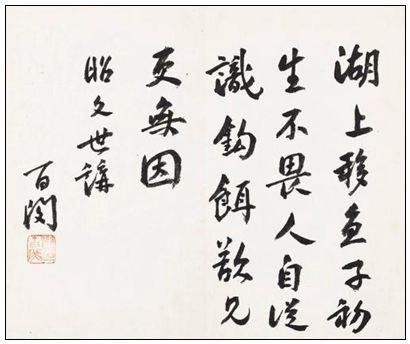 湖上移魚子初
生不畏人自從
識鈎餌欲見
更無因
昭文世講
百閔